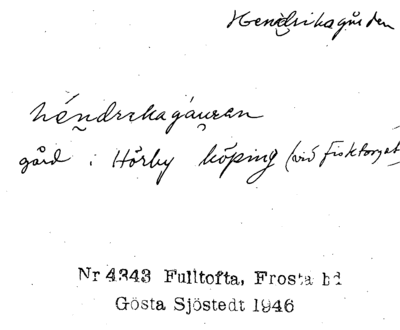 Hendrikagården
héndrikagáuren
gård i Hörby köping (vid Fisktorget)
Nr 4343 Fulltofta, Frosta hd
Gösta Sjöstedt 1946